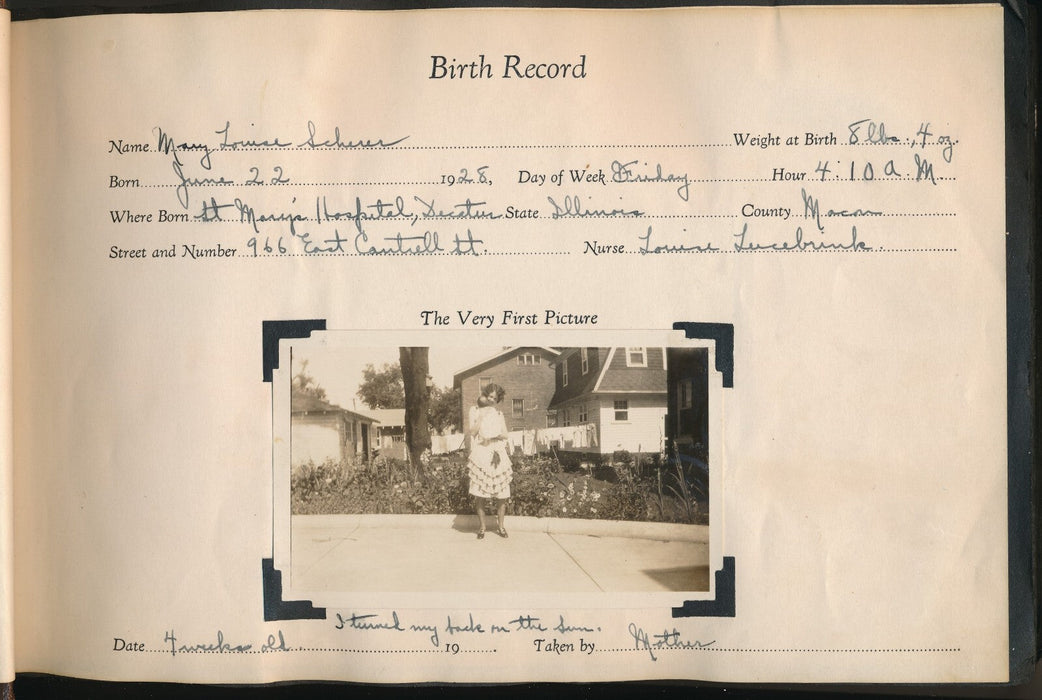 Birth Record
Name Mary Louise Scherer Weight at Birth 8 lbs., 4 oz.
Born June 22 1928, Day of Week Friday Hour 4:10 A.M.
Where Born St Mary's Hospital, Decatur State Illinois County Macon
Street and Number 966 East Cantrell St. Nurse Louise
The Very First Picture
I turned my back on the sun.
Date 4 weeks old 19 Taken by Mother